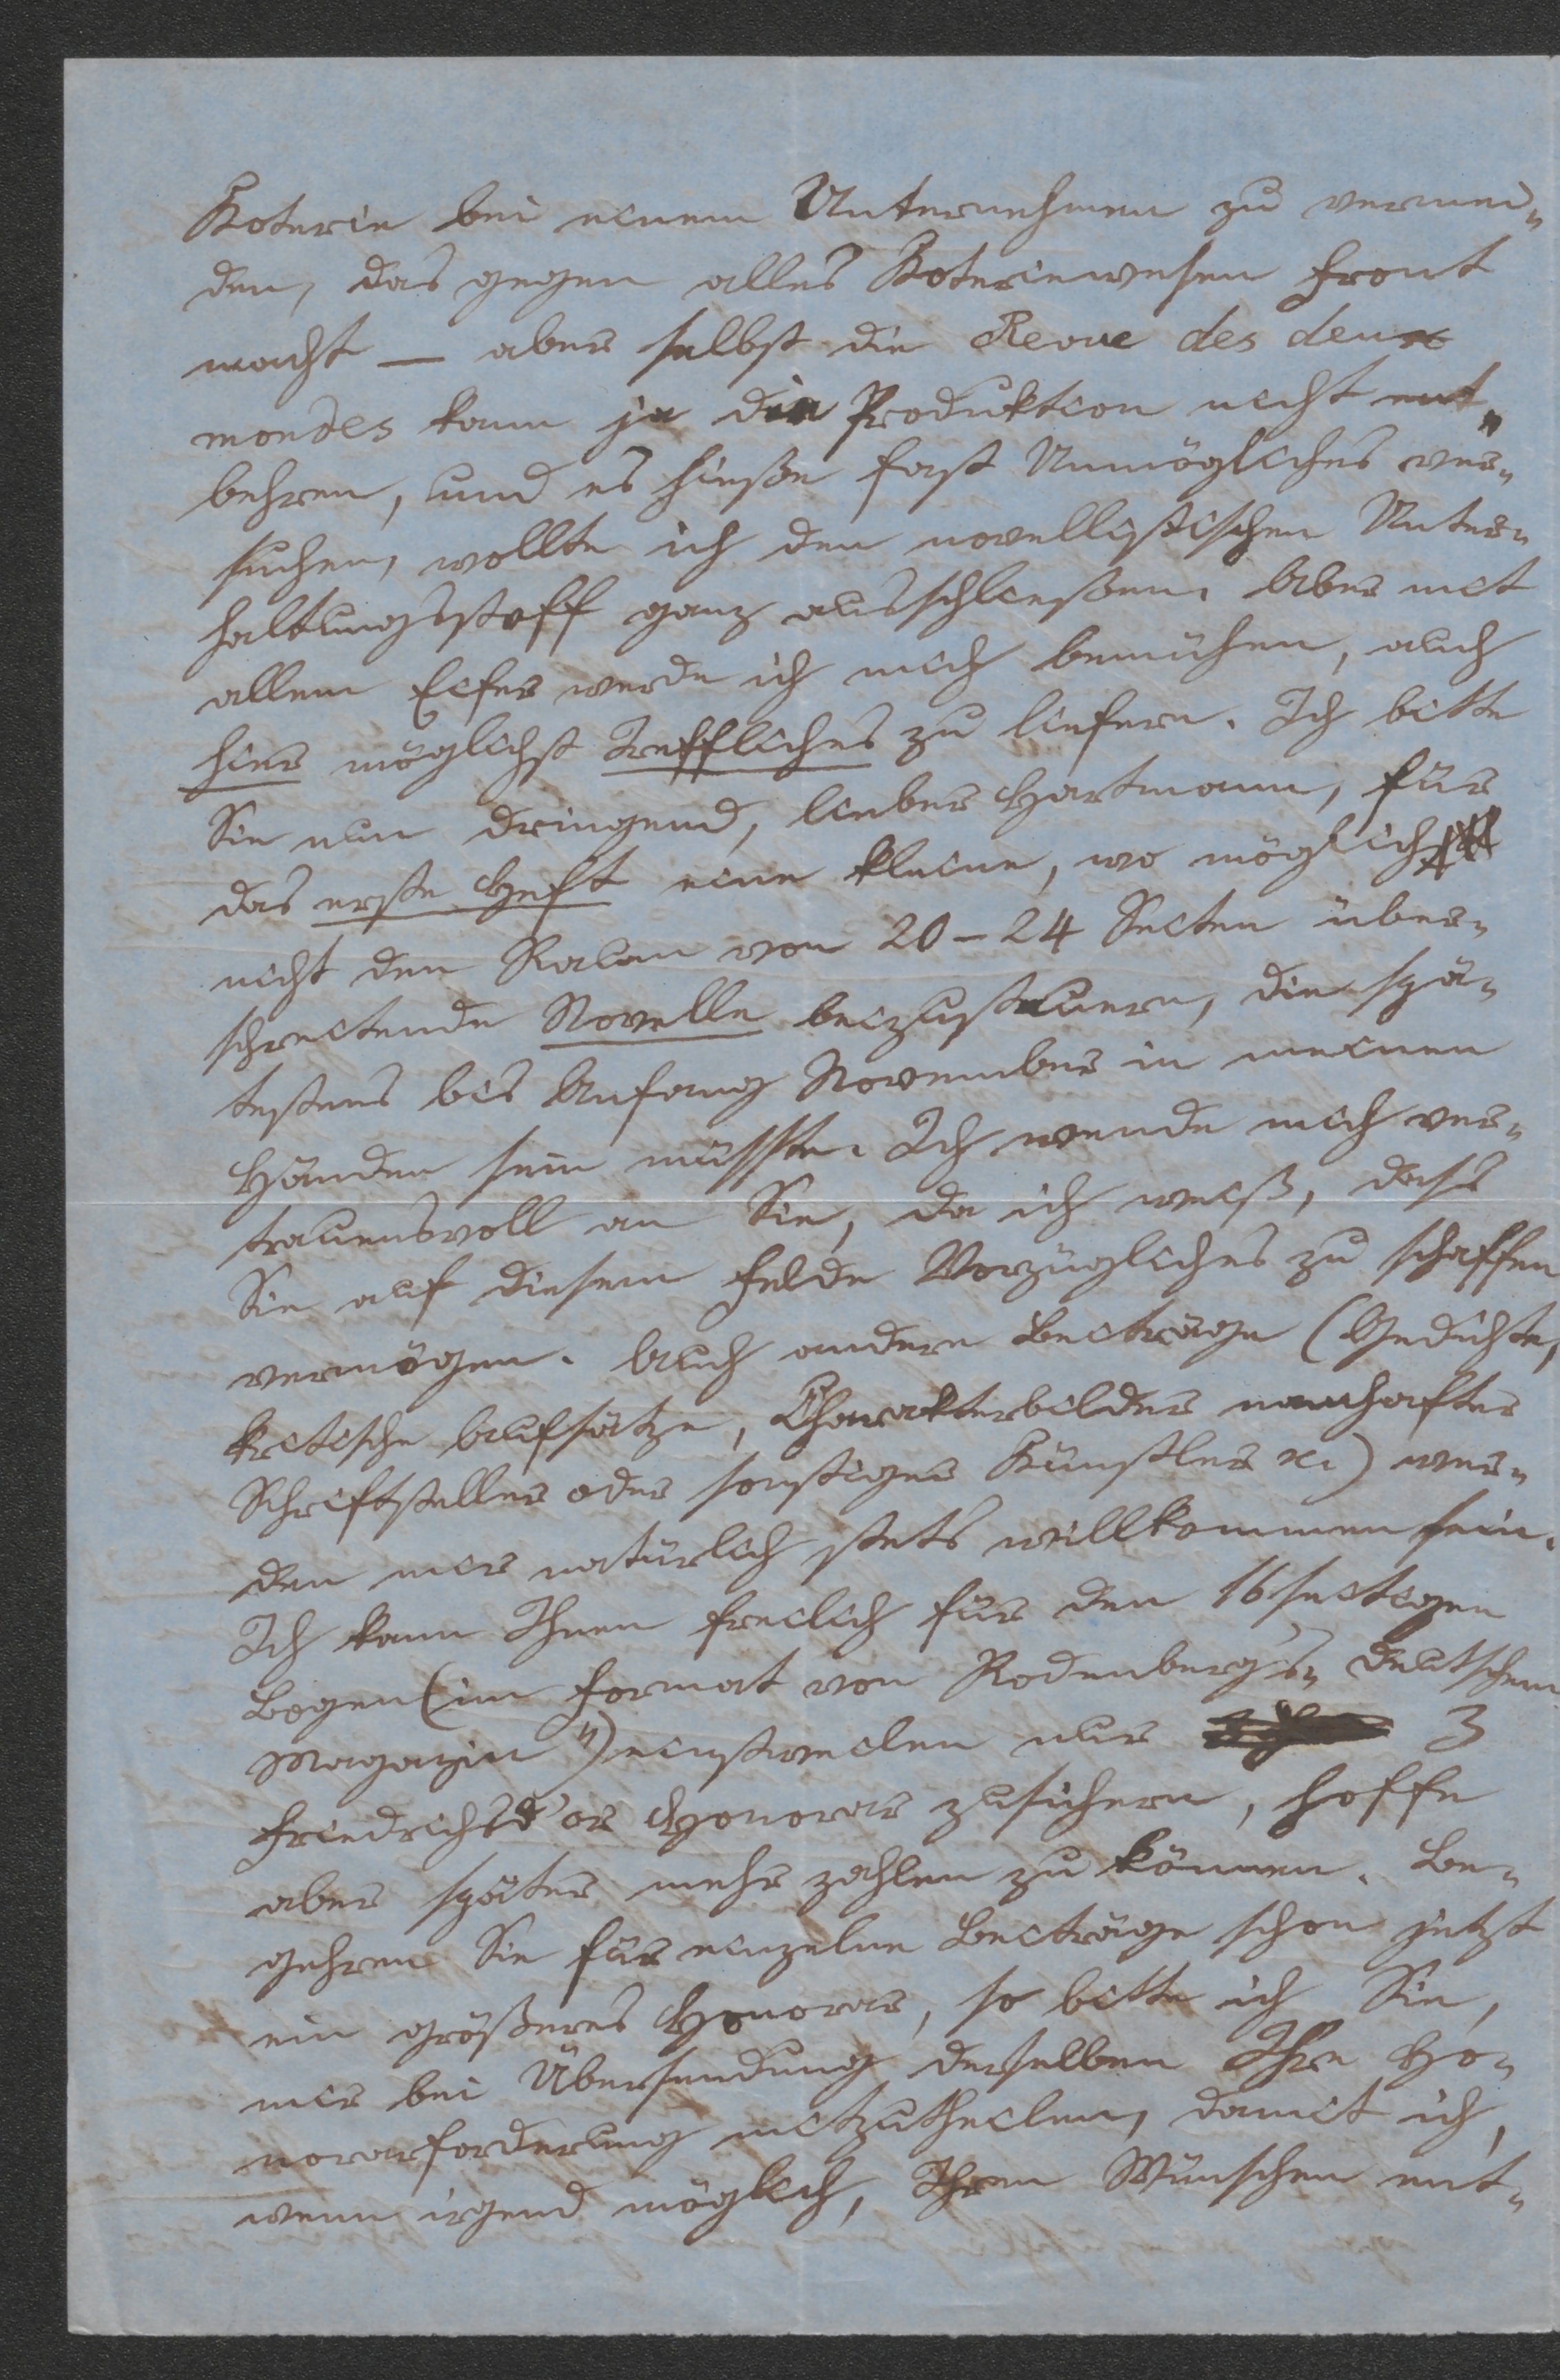 Koterie bei einem Unternehmen zu vermei-
den, das gegen alles Koteriewesen Front
macht — aber selbst die Revue des deux
mondes kann ja die Produktion nicht ent-
behren, und es hieße fast Unmögliches ver-
suchen, wollte ich den novellistischen Unter-
haltungsstoff ganz ausschließen. Aber mit
allem Eifer werde ich mich bemühen, auch
hier möglichst Treffliches zu liefern. Ich bitte
Sie nun dringend, lieber Hartmann, für
das erste Heft eine kleine, wo möglich
nicht den Raum von 20–24 Seiten über-
schreitende Novelle beizusteuern, die spä-
testens bis Anfang November in meinen
Händen sein müsste. Ich wende mich ver-
trauensvoll an Sie, da ich weiß, dass
Sie auf diesem Felde Vorzügliches zu schaffen
vermögen. Auch andere Beiträge (Gedichte,
kritische Aufsätze, Charakterbilder namhafter
Schriftsteller oder sonstiger Künstler ꝛc.) wer-
den mir natürlich stets willkommen sein.
Ich kann Ihnen freilich für den 16seitigen
Bogen (im Format von Rodenberg's „Deutschem
Magazin") einstweilen nur 3
Friedrichsd'or Honorar zusichern, hoffe
aber später mehr zahlen zu können. Be-
gehren Sie für einzelne Beiträge schon jetzt
ein größeres Honorar, so bitte ich Sie,
mir bei Übersendung derselben Ihre Ho-
norarforderung mitzutheilen, damit ich,
wenn irgend möglich, Ihren Wünschen ent-